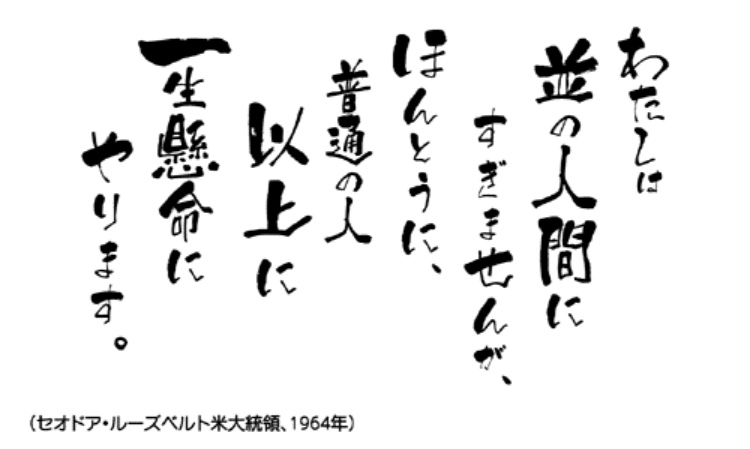 わたしは
並の人間に
すぎませんが、
ほんとうに、
普通の人
以上に
一生懸命に
やります。
（セオドア・ルーズベルト米大統領、1964年）